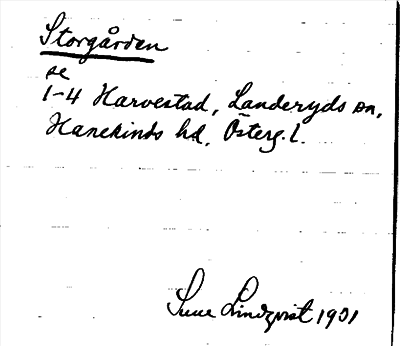 Storgården
se
1-4 Harvestad, Landeryds sn,
Hanekinds hd, Österg. l.
Sune Lindqvist 1931